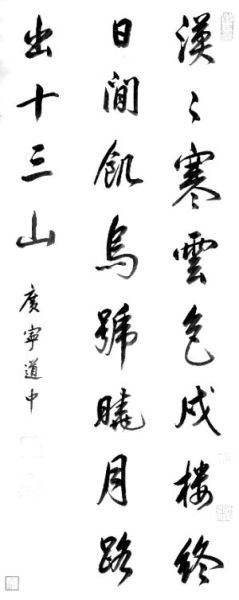 漠〻寒雲色戍樓終
日閒飢烏號曉月路
出十三山
廣寧道中